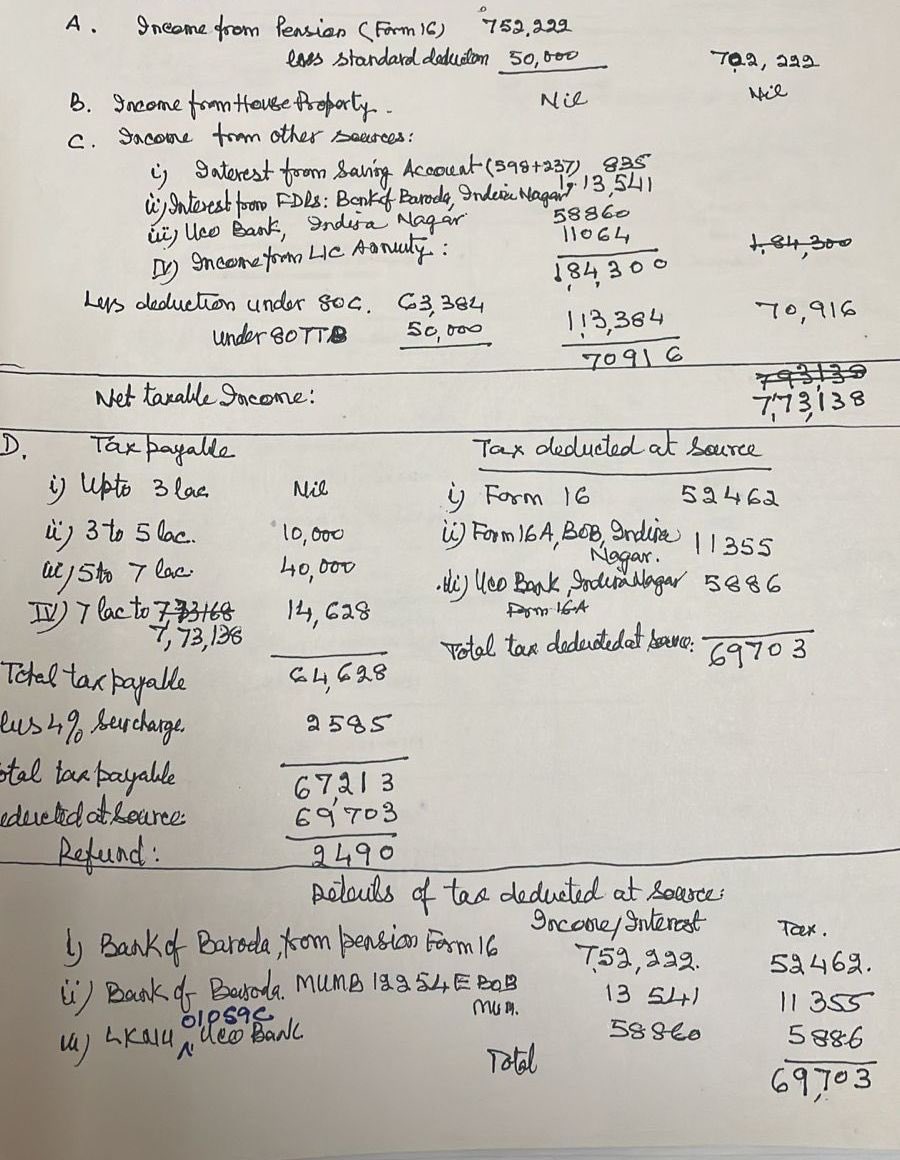 A. Income from Pension (Form 16) 752,222
less standard deduction 50,000 702,222
B. Income from House Property - Nil Nil
C. Income from other sources:
i) Interest from Saving Account (598+237) 835
ii) Interest from FDRs: Bank of Baroda, Indira Nagar 1,13,541
iii) Uco Bank, Indira Nagar 58860
IV) Income from LIC Annuity: 11064
184,300 1,84,300
Less deduction under 80C. 63,384
under 80TTB 50,000 113,384 70,916
70916
793138
Net taxable Income: 7,73,138
D. Tax payable Tax deducted at source
i) Upto 3 lac Nil i) Form 16 52462
ii) 3 to 5 lac. 10,000 ii) Form 16A, BOB, Indira Nagar. 11355
iii) 5 to 7 lac. 40,000 iii) Uco Bank, Indira Nagar 5886
Form 16A
IV) 7 lac to 773168 14,628
7,73,138
Total tax deducted at source: 69703
Total tax payable 64,628
lus 4% Surcharge. 2585
otal tax payable 67213
educted at source: 69,703
Refund: 2490
Details of tax deducted at source:
Income/Interest Tax.
i) Bank of Baroda, from pension Form 16 7,52,222. 52462.
ii) Bank of Baroda. MUMB 12254E BOB MUM. 13 541 11355
01059C
iii) LKNU Uco Bank 58860 5886
Total 69,703